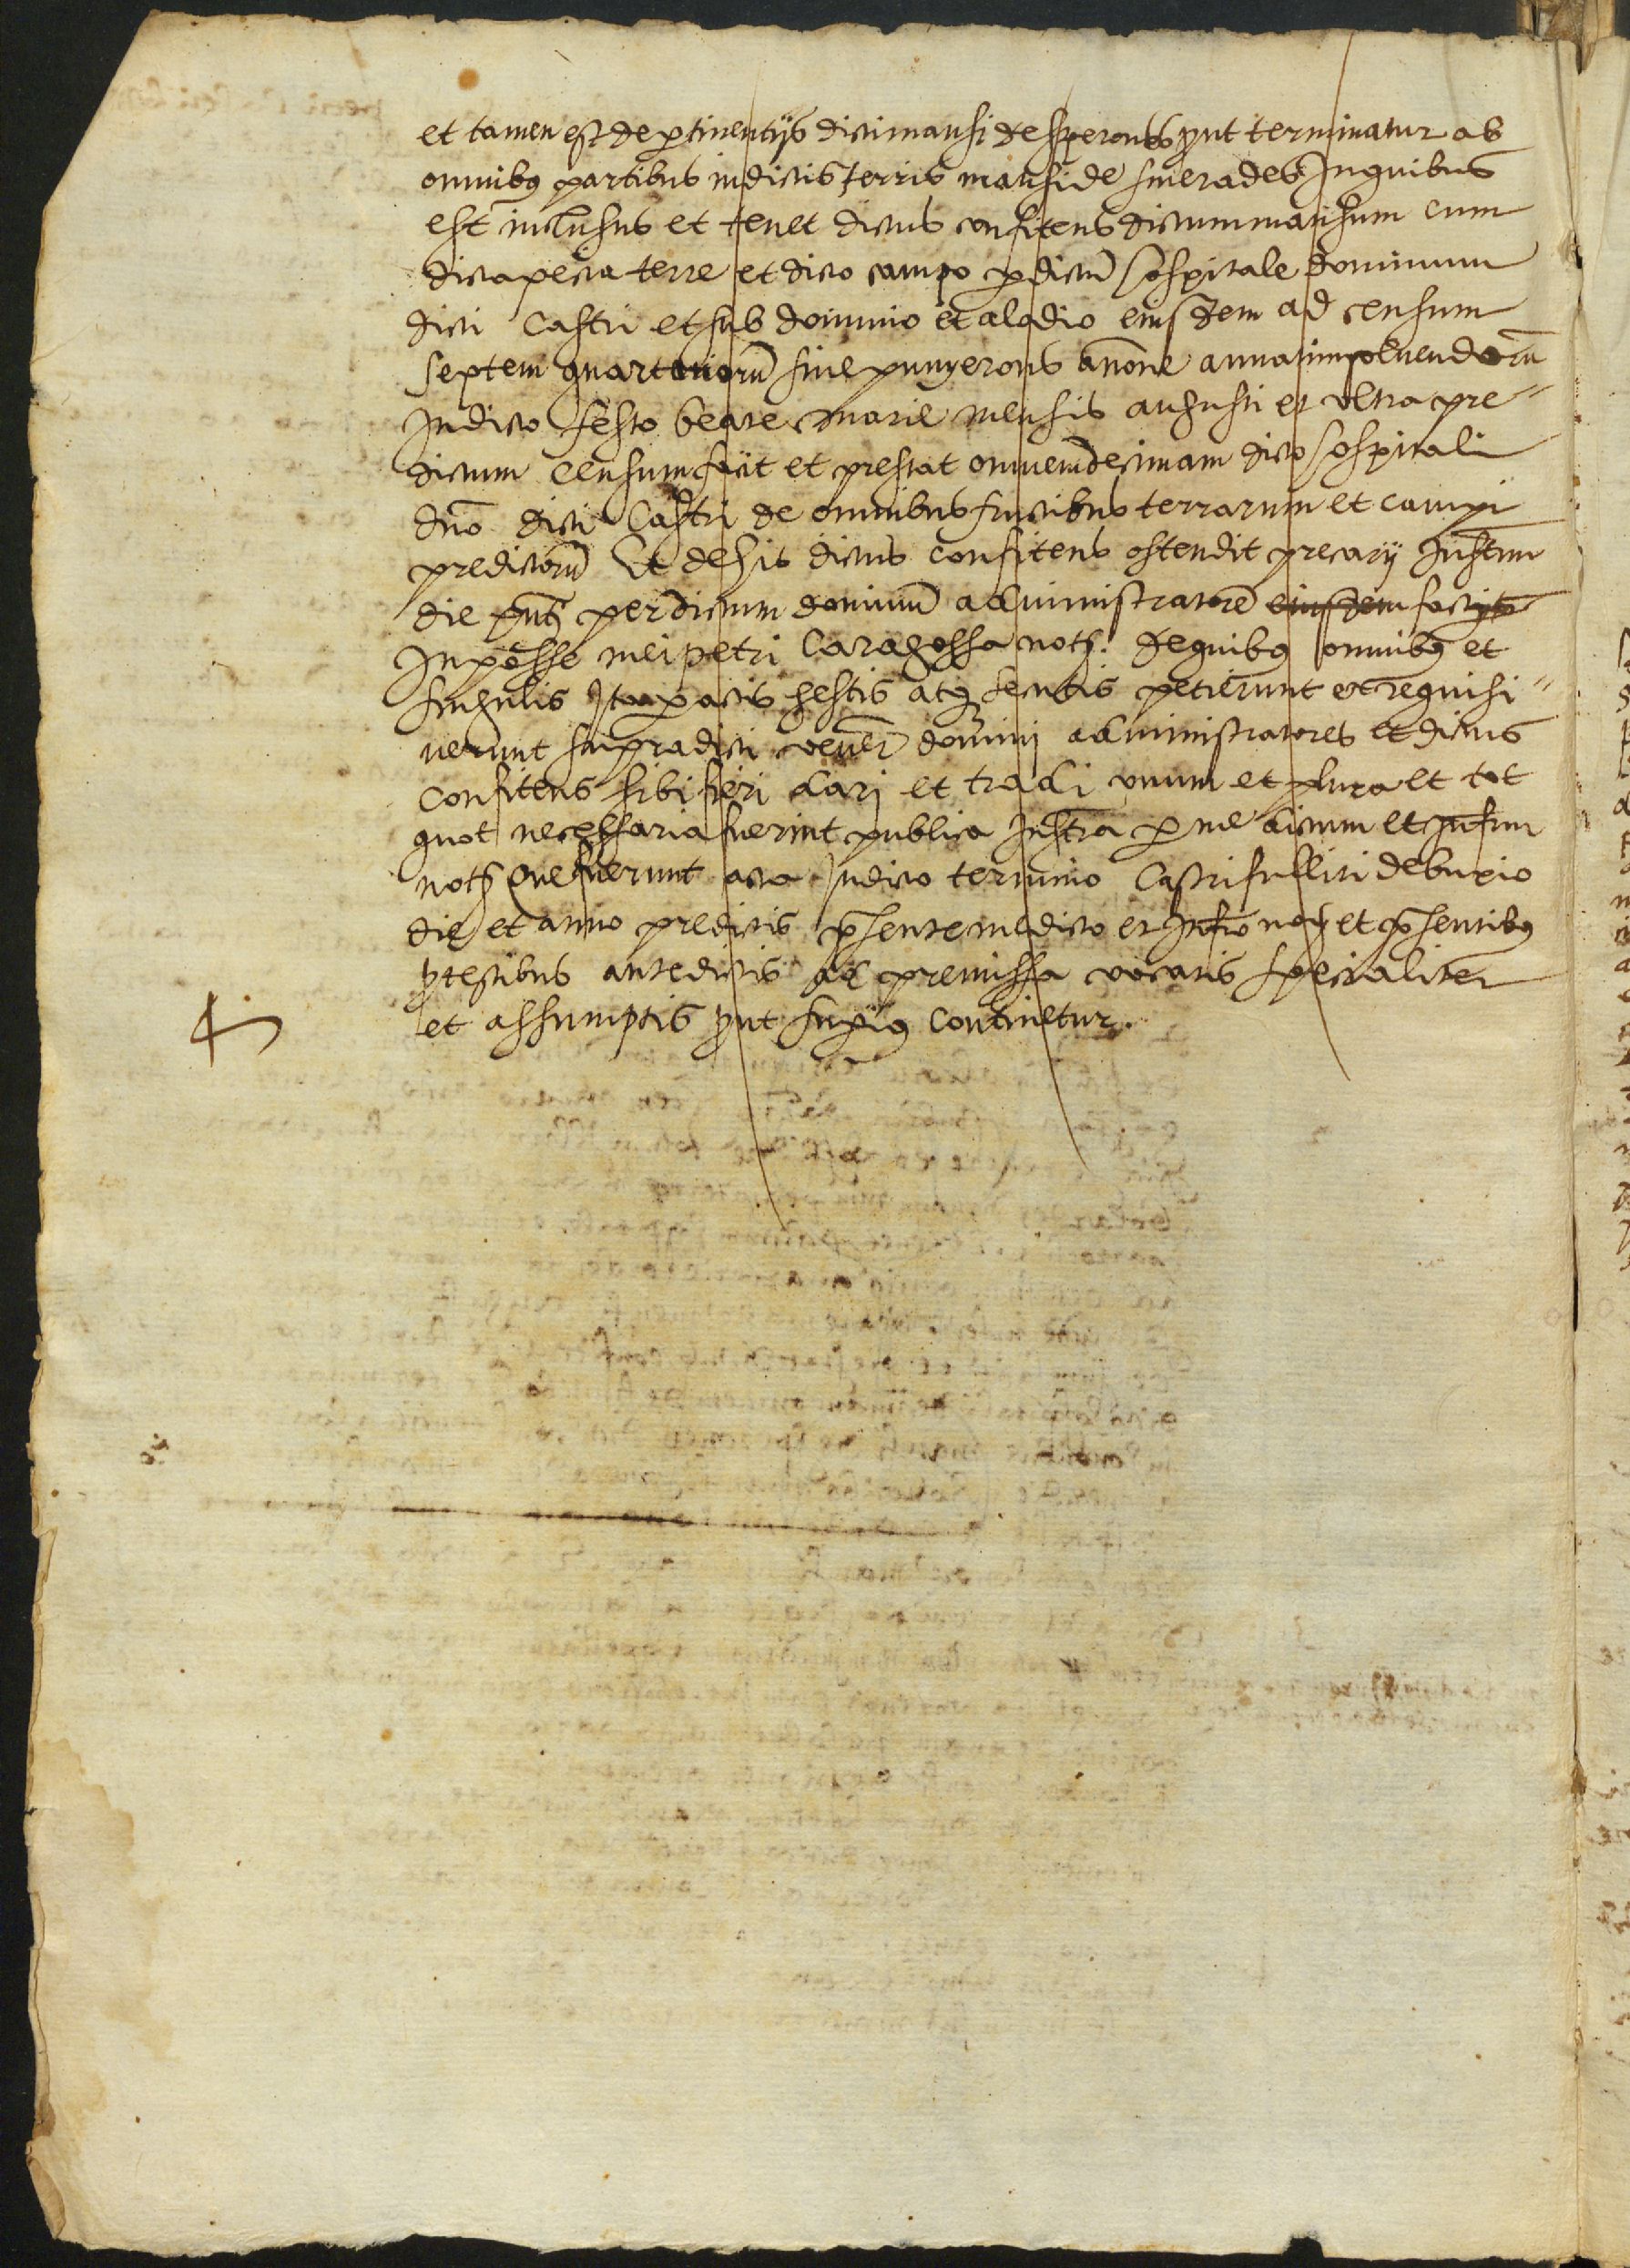 et tamen est de ptinentijs dicti mansi de sperons put terminatur ab
omnibus partibus in dictis terris mansi de Inquibus
est inclusus et tenet dictus confitens dictum mansum cum
dicta pecia terre et dicto campo p dictu hospitale dominum
dicti Castri et sub dominio et alodio eiusdem ad censum
septem quarteriorū sine punyerons annone annatim soluendorū
In dicto festo beate marie mensis augusti et ultra pre-
dictum censum facit et prestat omnem decimam dicto hospitali
dno dicti Castri de omnibus fructibus terrarum et campi
predictorū Et de his dictus confitens ostendit precarij Instrum
die pnti per dictum dominū administratorē eiusdem
In posse mei petri Caragossa noty. de quibus omnibus et
singulis Ita p actis gestis atq secutis petierunt et requisi-
uerunt supradicti venerl domini administratores et dictus
confitens sibi fieri dari et tradi unum et plura et tot
quot necessaria fuerint publica Instra p me dictum et Infrum
noty Que fuerunt acta In dicto termino Castrifulliti de buxio
die et anno predictis psente me dicto et Infro noty et psentibus
ptestibus antedictis ad premissa vocatis specialiter
et assumptis put supius continetur.